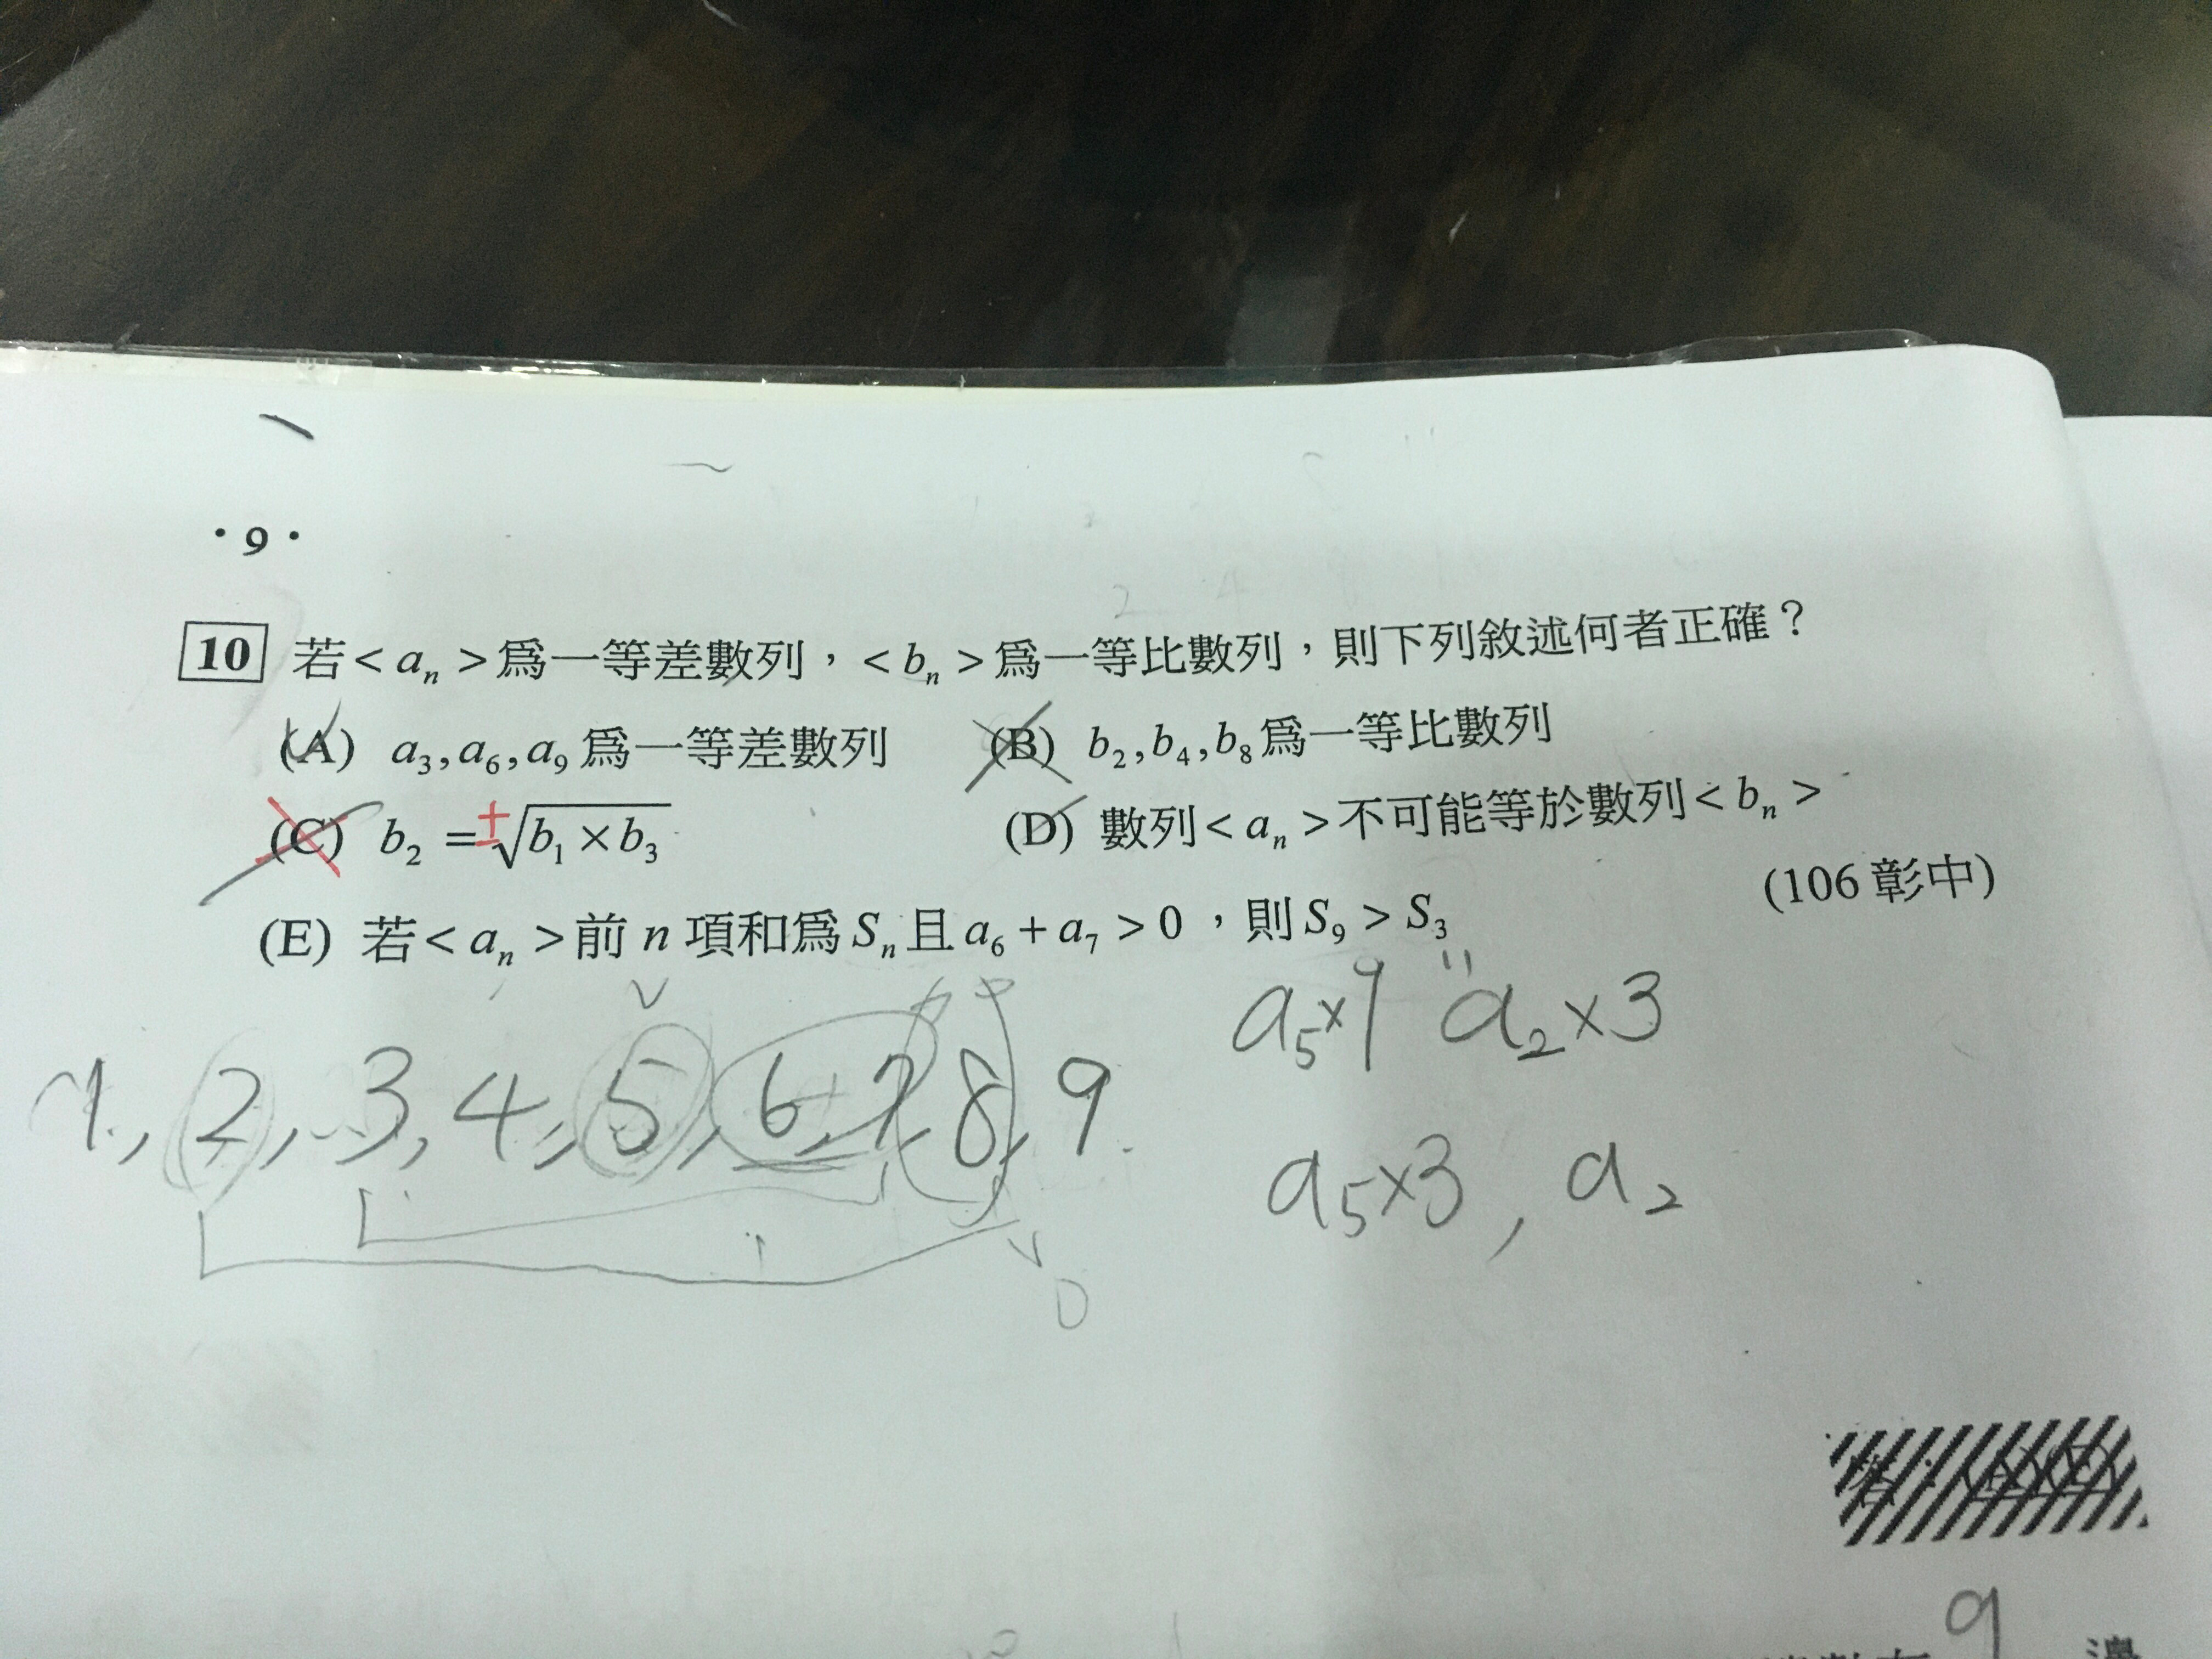 · 9 ·
10 若< aₙ >為一等差數列，< bₙ >為一等比數列，則下列敘述何者正確？
(A) a₃,a₆,a₉為一等差數列 (B) b₂,b₄,b₈為一等比數列
(C) b₂ = ±√(b₁×b₃) (D) 數列< aₙ >不可能等於數列< bₙ >
(106彰中)
(E) 若< aₙ >前 n 項和為 Sₙ 且 a₆ + a₇ > 0，則 S₉ > S₃
a₅×9 a₂×3
1, 2, 3, 4, 5, 6, 7, 8, 9
a₅×3, a₂
0
9